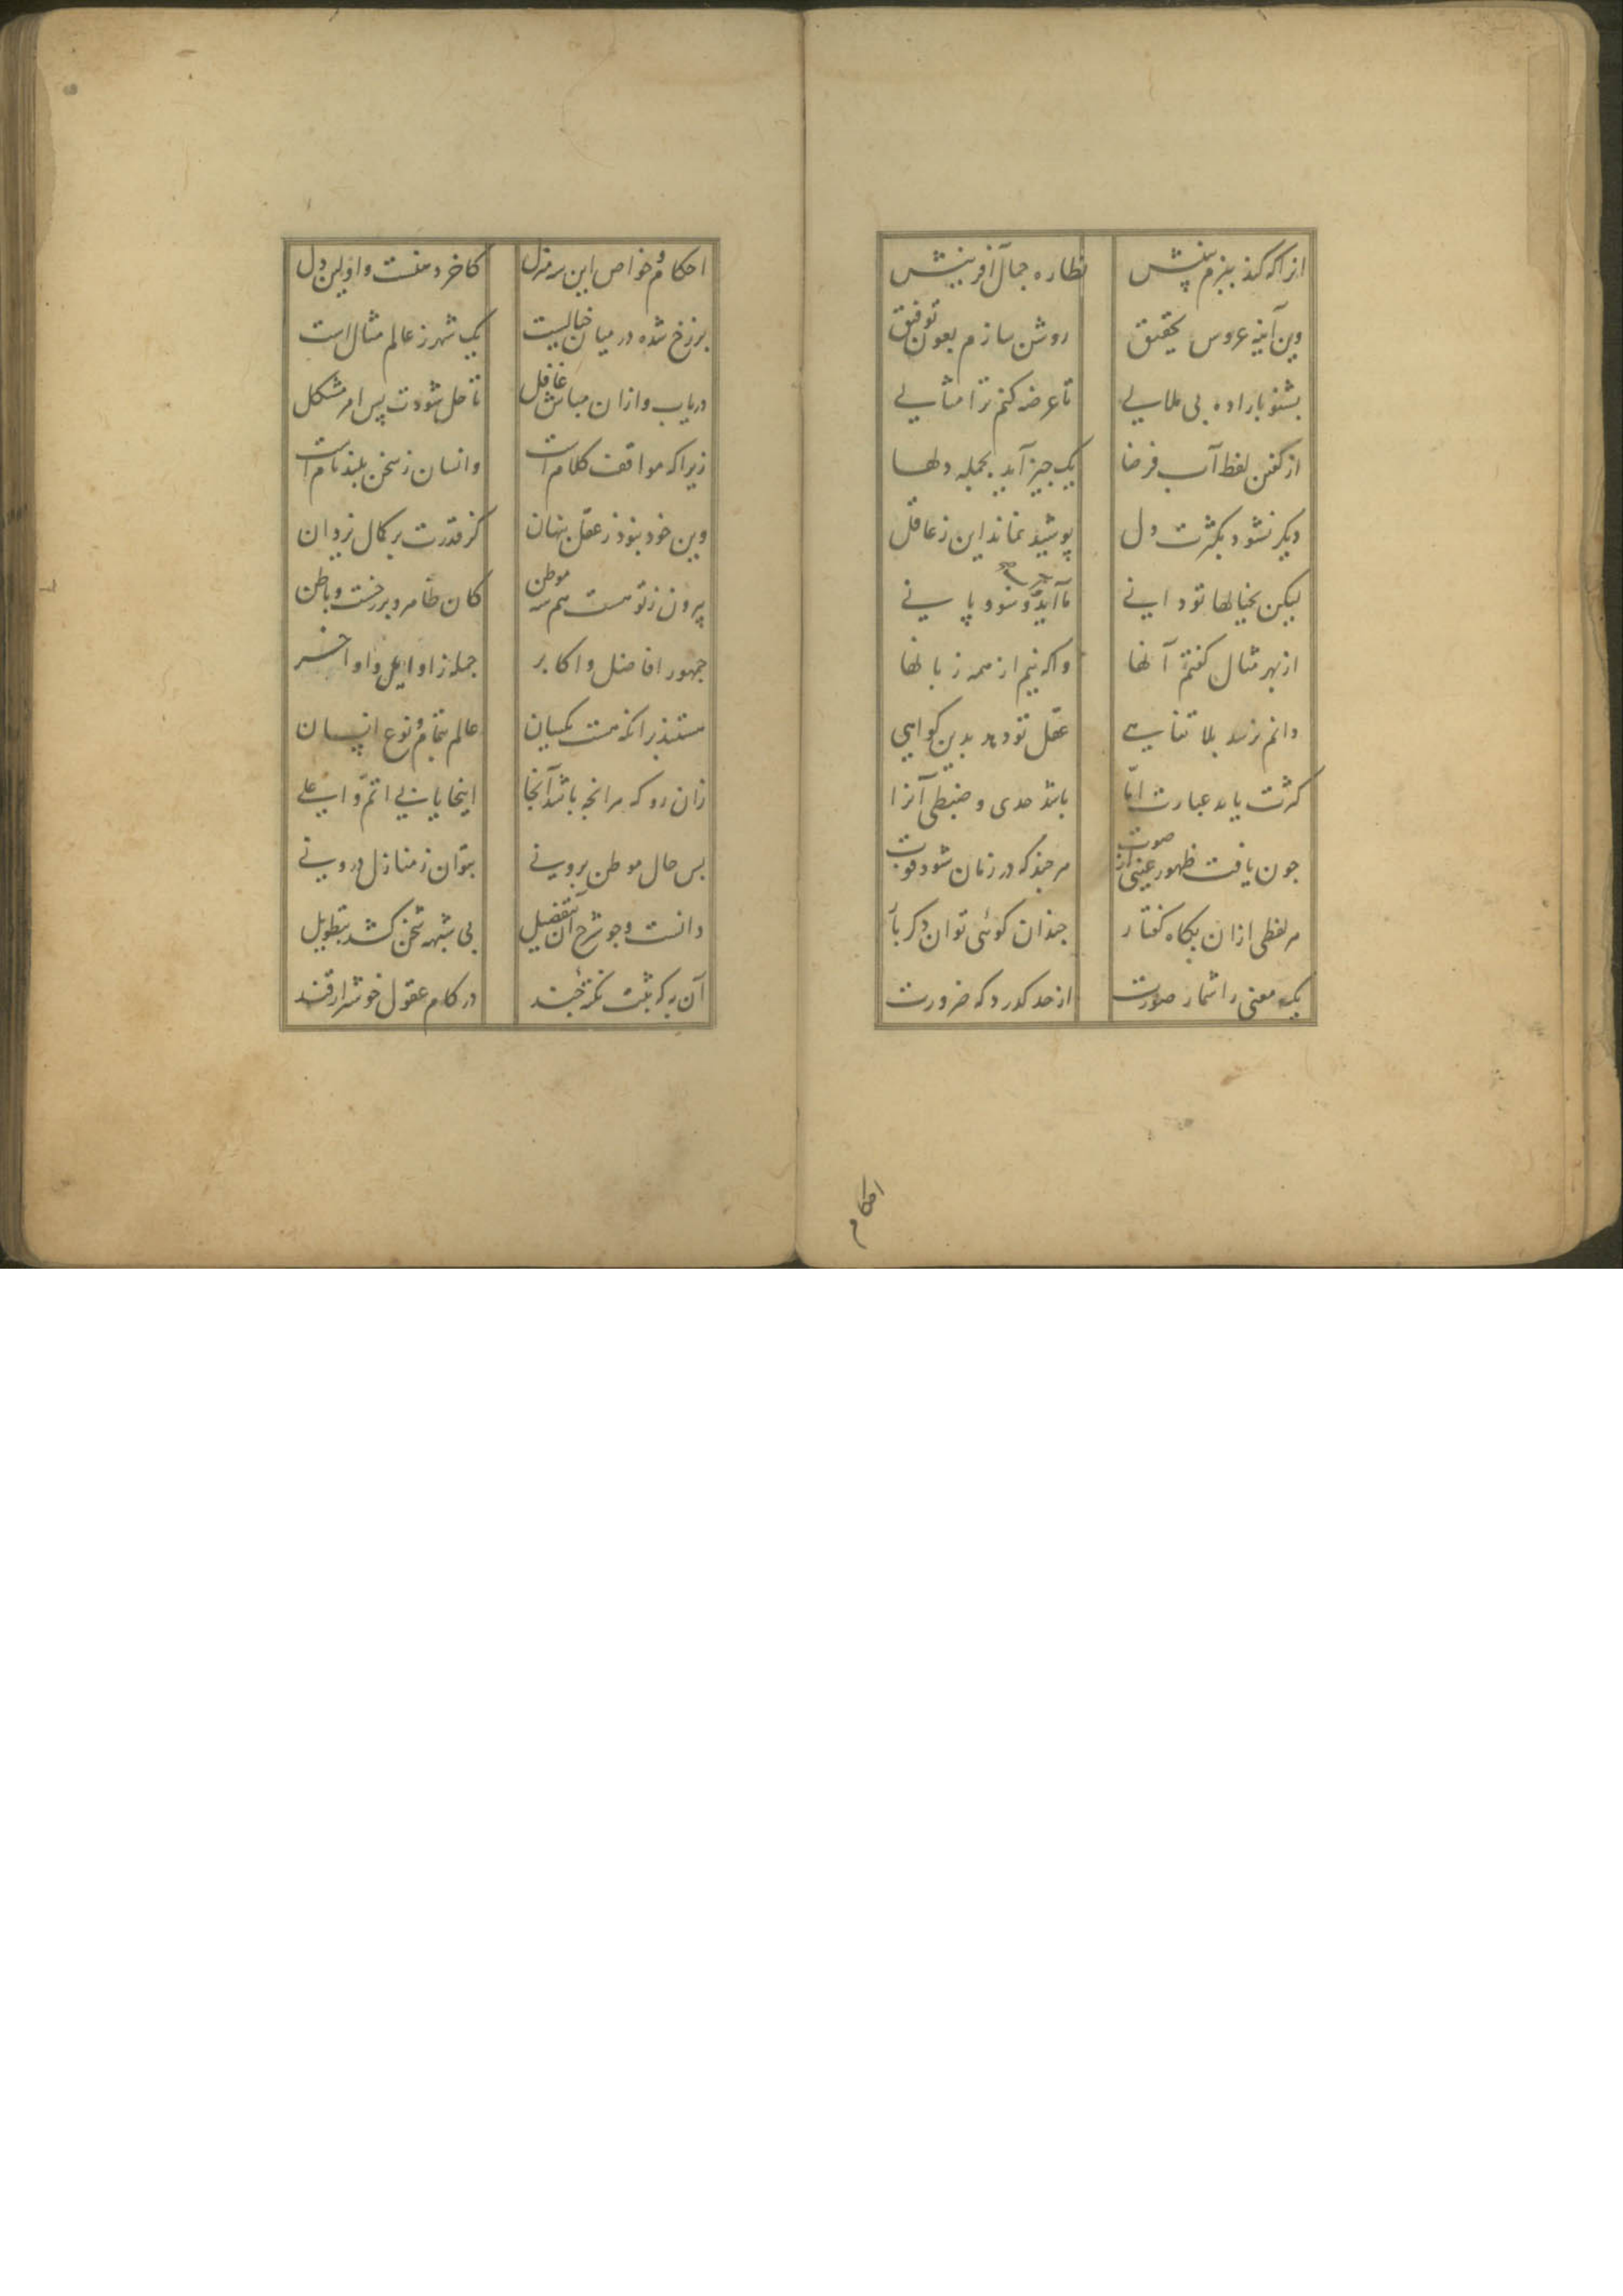 انراکه کند ببزم بینش نظاره جمال آفرینش
وین آینه عروس تحقیق روشن سازم بعون توفیق
بشنو باراده بی ملالی تا عرضه کنم ترا مثالی
از گفتن لفظ آب فرضا یک چیز آید بجمله دلها
دیگر نشود بکثرت دل پوشیده نماند این ز عاقل
لیکن بخیالها تو دانی ما آید و سو و پانی
از بهر مثال گفتم آنها واکه نیم از همه زبانها
دانم نرسد بلا تناهی عقل تو دهد بدین گواهی
کثرت یابد عبارت اما باشد حدی و ضبطی آنرا
چون یافت ظهور عینی از صوت هر چند که در زمان شود فوت
هر لفظی ازان بگاه گفتار چندان گوئی توان دگر بار
یک معنی را شمار صورت از حد گذرد که ضرورت
احکام
احکام و خواص این سه منزل کاخر دهنست و اولین دل
برزخ شده در میان خیالیست یک شهر ز عالم مثال است
دریاب و ازان مباش غافل تا حل شودت پس امر مشکل
زیرا که مواقف کلام است وانسان ز سخن بلند نام است
وین خود نبود ز عقل پنهان کز قدرت بر کمال یزدان
بیرون ز تو هست هم سه موطن کان ظاهر و برزخست و باطن
جمهور افاضل و اکابر جمله ز اوایل و اواخر
هستند برانکه هست یکسان عالم بتمام و نوع انسان
زان رو که هرانچه باشد آنجا اینجا یابی اتم و اعلی
بس حال موطن برونی بتوان ز منازل درونی
دانست و جو شرح آن بتفصیل بی شبهه سخن کشد بتطویل
آن به که بثبت نکته چند در کام عقول خوشتر از قند